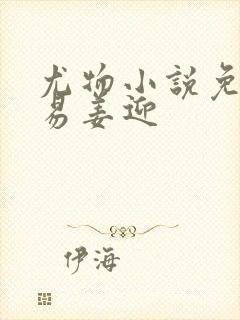 尤物小说免
易姜迎
伊海